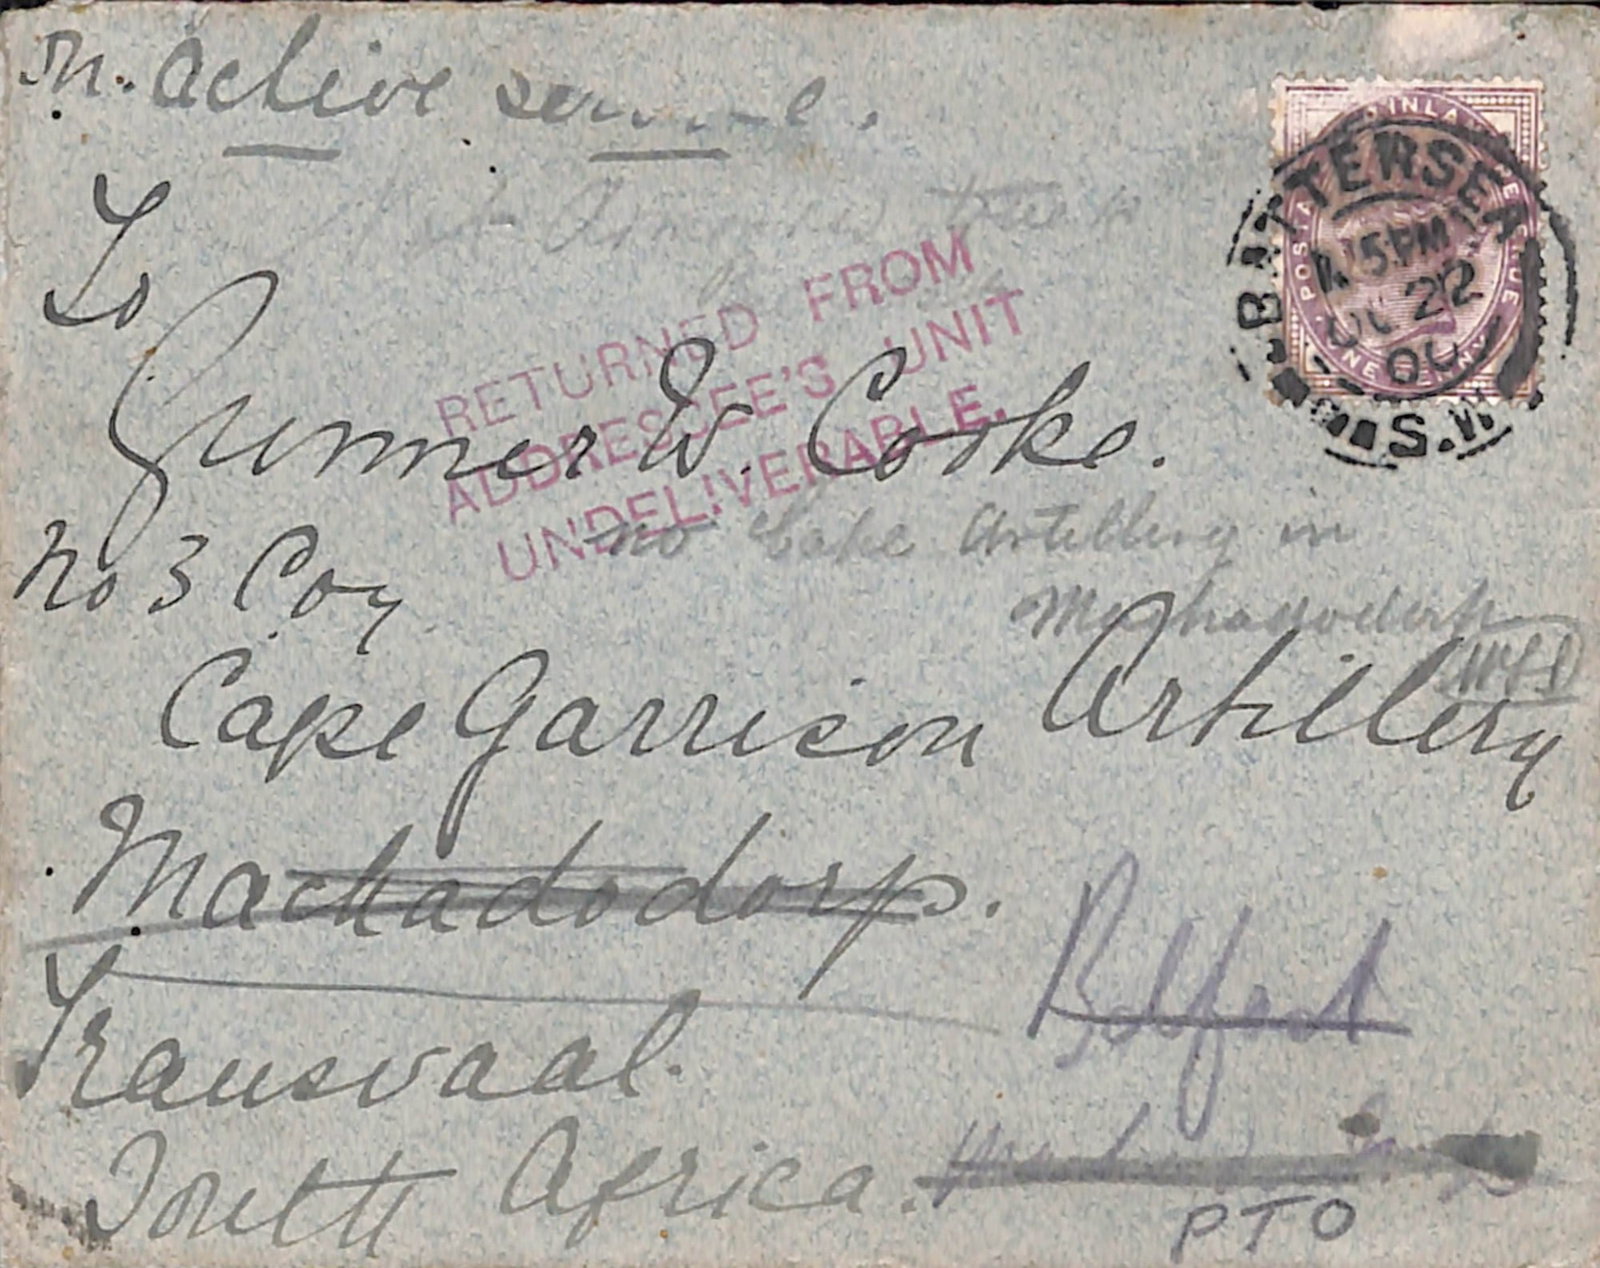 On active service.
To
Gunner W. Cooke.
No 3 Coy
Cape Garrison Artillery
Machadodorp.
Transvaal.
South Africa.
RETURNED FROM
ADDRESSEE'S UNIT
UNDELIVERABLE.
no Cape Artillery in
Machadodorp
Belfast
PTO
BATTERSEA
PM
OC 22
00
S.W.
POSTAGE & INLAND REVENUE
ONE PENNY